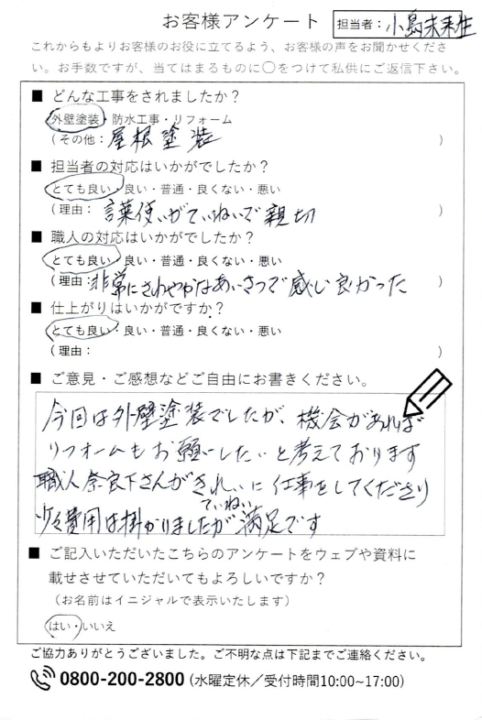 お客様アンケート 担当者：小島未来生
これからもよりお客様のお役に立てるよう、お客様の声をお聞かせくださ
い。お手数ですが、当てはまるものに〇をつけて私供にご返信下さい。
■ どんな工事をされましたか？
外壁塗装・防水工事・リフォーム
（その他： 屋根塗装 ）
■ 担当者の対応はいかがでしたか？
とても良い・良い・普通・良くない・悪い
（理由： 言葉使いがていねいで親切 ）
■ 職人の対応はいかがでしたか？
とても良い・良い・普通・良くない・悪い
（理由：非常にさわやかなあいさつで感じ良かった ）
■ 仕上がりはいかがですか？
とても良い・良い・普通・良くない・悪い
（理由： ）
■ ご意見・ご感想などご自由にお書きください。
今回は外壁塗装でしたが、機会があれば
リフォームもお願いしたいと考えております
職人奈良下さんがきれいに仕事をしてくださり
ていねい
少々費用は掛かりましたが満足です
■ ご記入いただいたこちらのアンケートをウェブや資料に
載せさせていただいてもよろしいですか？
（お名前はイニシャルで表示いたします）
はい・いいえ
ご協力ありがとうございました。ご不明な点は下記までご連絡ください。
0800-200-2800（水曜定休／受付時間10:00~17:00）